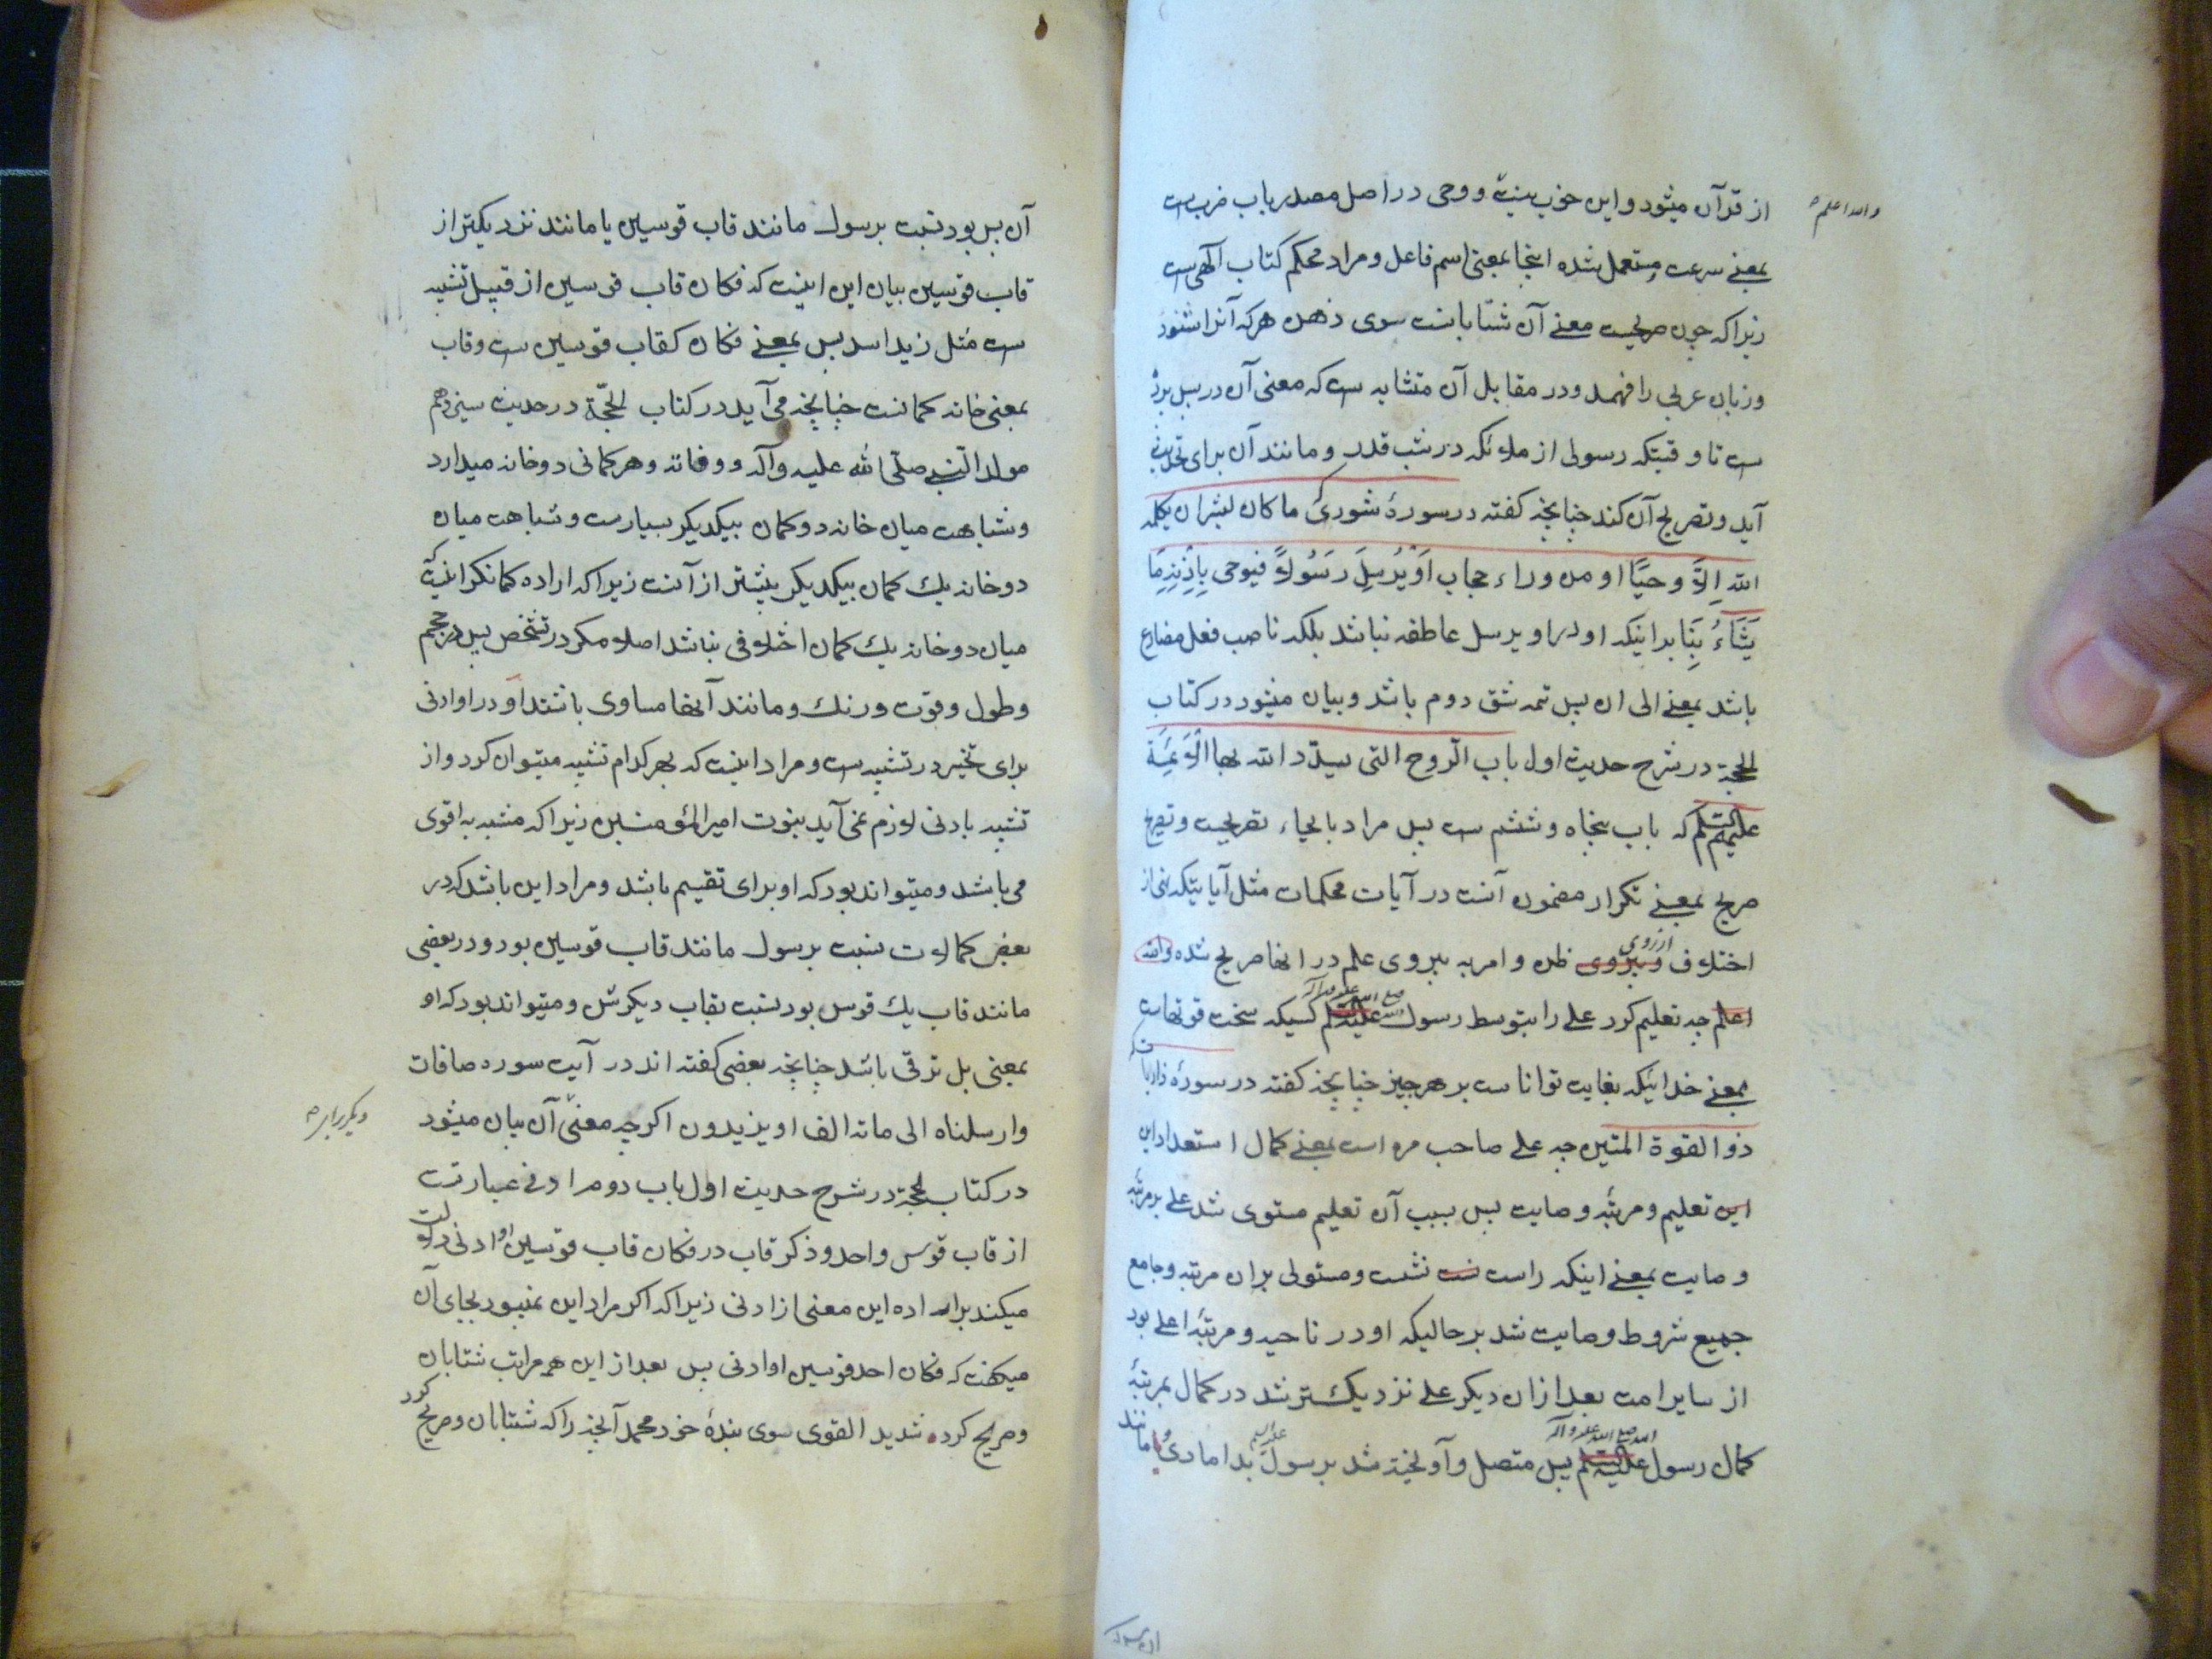 از قرآن میشود و این خوب نیست و وحی در اصل مصدر باب ضرب است
والله اعلم
بمعنی سرعت و مستعمل شده اینجا بمعنی اسم فاعل و مراد محکم کتاب آلهی است
زیرا که چون صریحست معنی آن شتابانست سوی ذهن هر که آنرا شنود
و زبان عربی را فهمد و در مقابل آن متشابه است که معنی آن در پس پرده
است تا وقتیکه رسولی از ملائکه در شب قدر و مانند آن برای تحدیث
آید و تصریح آن کند چنانچه گفته در سورهٔ شوریٰ ما کان لبشر ان یکلمه
الله اِلّا وحیًا او من وراء حجاب اَوْ یُرْسِلَ رَسُولًا فیوحی بِاِذْنِهِ مَا
یَشَاءُ بِنَا بر اینکه او در او یرسل عاطفه نباشد بلکه ناصب فعل مضارع
باشد بمعنی الی ان پس تتمه شق دوم باشد و بیان میشود در کتاب
الحجة در شرح حدیث اول باب الرّوح التی یسدّد الله بها الائمة
علیهم السلم که باب پنجاه و ششم است پس مراد بایحاء تصریحست و تصریح
صریح بمعنی تکرار مضمون آنست در آیات محکمات مثل آیاتیکه نهی از
اختلاف و پیروی از روی ظن و امر به پیروی علم در انها صریح شده والله
اعلم چه تعلیم کرد علی را بتوسط رسول علیه السلم صلی الله علیه و آله کسیکه سخت قوتهاست
بمعنی خدائیکه بغایت تواناست بر هر چیز چنانچه گفته در سورهٔ ذاریات
ذو القوة المتین چه علی صاحب مره است بمعنی کمال استعداد این
این تعلیم و مرتبه وصایت پس بسبب آن تعلیم مستوی شد علی بر مرتبه
وصایت بمعنی اینکه راست نشست و مستولی بر ان مرتبه و جامع
جمیع شروط وصایت شد بر حالیکه او در ناحیه و مرتبهٔ اعلی بود
از سایر امت بعد از ان دیگر علی نزدیک‌تر شد در کمال بمرتبهٔ
کمال رسول علیه السلم صلی الله علیه و آله پس متصل و آویخته شد برسول علیه السلم بدامادی و مانند
آن پس بود نسبت برسول مانند قاب قوسین یا مانند نزدیکتر از
قاب قوسین بیان این اینست که فکان قاب قوسین از قبیل تشبیه
است مثل زید اسد پس بمعنی فکان کقاب قوسین است و قاب
بمعنی خانه کمانست چنانچه می آید در کتاب الحجّة در حدیث سیزدهم
مولد النبی صلّی الله علیه وآله و وفاته و هر کمانی دو خانه میدارد
و شباهت میان خانه دو کمان بیکدیگر بسیارست و شباهت میان
دو خانه یک کمان بیکدیگر بیشتر از آنست زیرا که اراده کمانگر اینست که
میان دو خانه یک کمان اختلافی نباشد اصلا مگر در تشخص پس در حجم
و طول و قوت و رنک و مانند آنها مساوی باشند او در او ادنی
برای تخییر در تشبیه است و مراد اینست که بهر کدام تشبیه میتوان کرد و از
تشبیه بادنی لازم نمی آید نبوت امیر المؤمنین زیرا که مشبه به اقوی
می باشد و میتواند بود که او برای تقسیم باشد و مراد این باشد که در
بعض کمالات نسبت برسول مانند قاب قوسین بود و در بعضی
مانند قاب یک قوس بود نسبت بقاب دیگرش و میتواند بود که او
بمعنی بل ترقی باشد چنانچه بعضی گفته اند در آیت سوره صافات
وارسلناه الی مائة الف او یزیدون اگرچه معنی آن بیان میشود
در کتاب الحجة در شرح حدیث اول باب دوم
از قاب قوس واحد و ذکر قاب در فکان قاب قوسین او ادنی دلالت
میکند بر اراده این معنی از ادنی زیرا که اگر مراد این نمیبود بجای آن
میگفت که فکان احد قوسین او ادنی پس بعد از این همه مراتب شتابان
و صریح کرد شدید القوی سوی بندهٔ خود محمد آنچه را که شتابان و صریح کرد